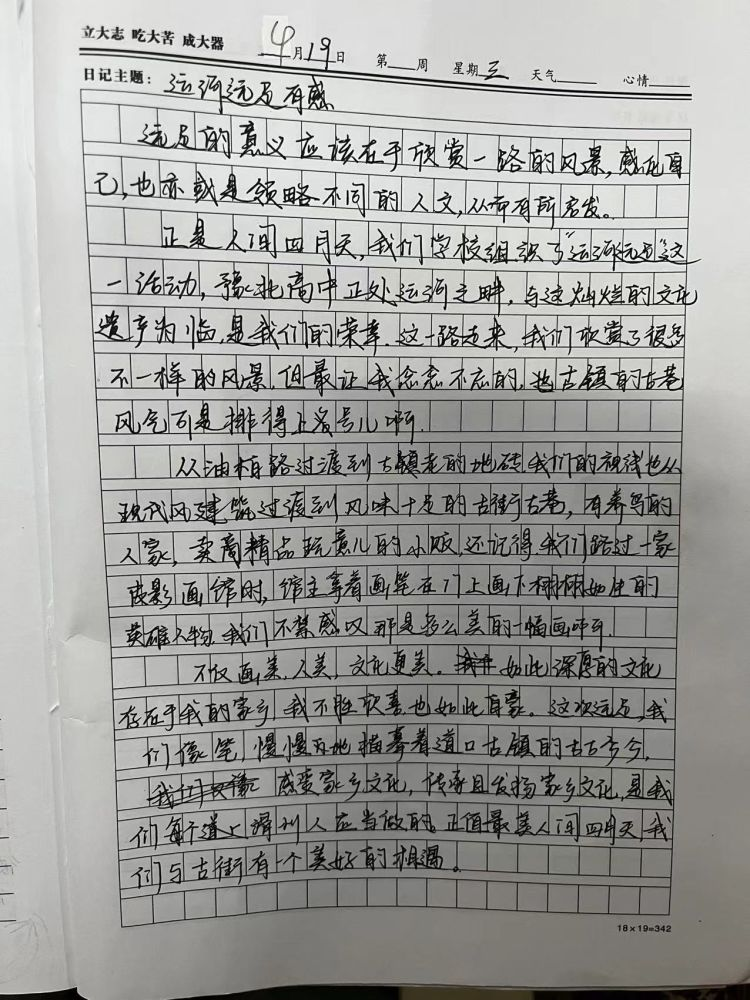 立大志 吃大苦 成大器
4月19日 第 周 星期三 天气 心情
日记主题：运河远足有感
远足的意义应该在于欣赏一路的风景，感化自
己，也亦或是领略不同的人文，从而有所启发。
正是人间四月天，我们学校组织了“运河远足”这
一活动，豫北高中正处运河之畔，与这灿烂的文化
遗产为临，是我们的荣幸．这一路走来，我们欣赏了很多
不一样的风景．但最让我念念不忘的，古镇的古巷
风气可是排得上名号儿啊．
从油柏路过渡到古镇老的地砖，我们的视线也从
现代风建筑过渡到风味十足的古街古巷，有养鸟的
人家，卖高精品玩意儿的小贩，还记得我们路过一家
影画馆时，馆主拿着画笔在门上画下栩栩如生的
英雄人物．我们不禁感叹那是多么美的一幅画啊．
不仅画美，人美，文化更美．如此深厚的文化
存在于我的家乡，我不胜欣喜也如此自豪。这次远足，我
们像笔，慢慢地描摹着道口古镇的古古今今．
感受家乡文化，传承且发扬家乡文化，是我
们每个道上滑州人应当做的．正值最美人间四月天，我
们与古街有一个美好的相遇。
18×19=342